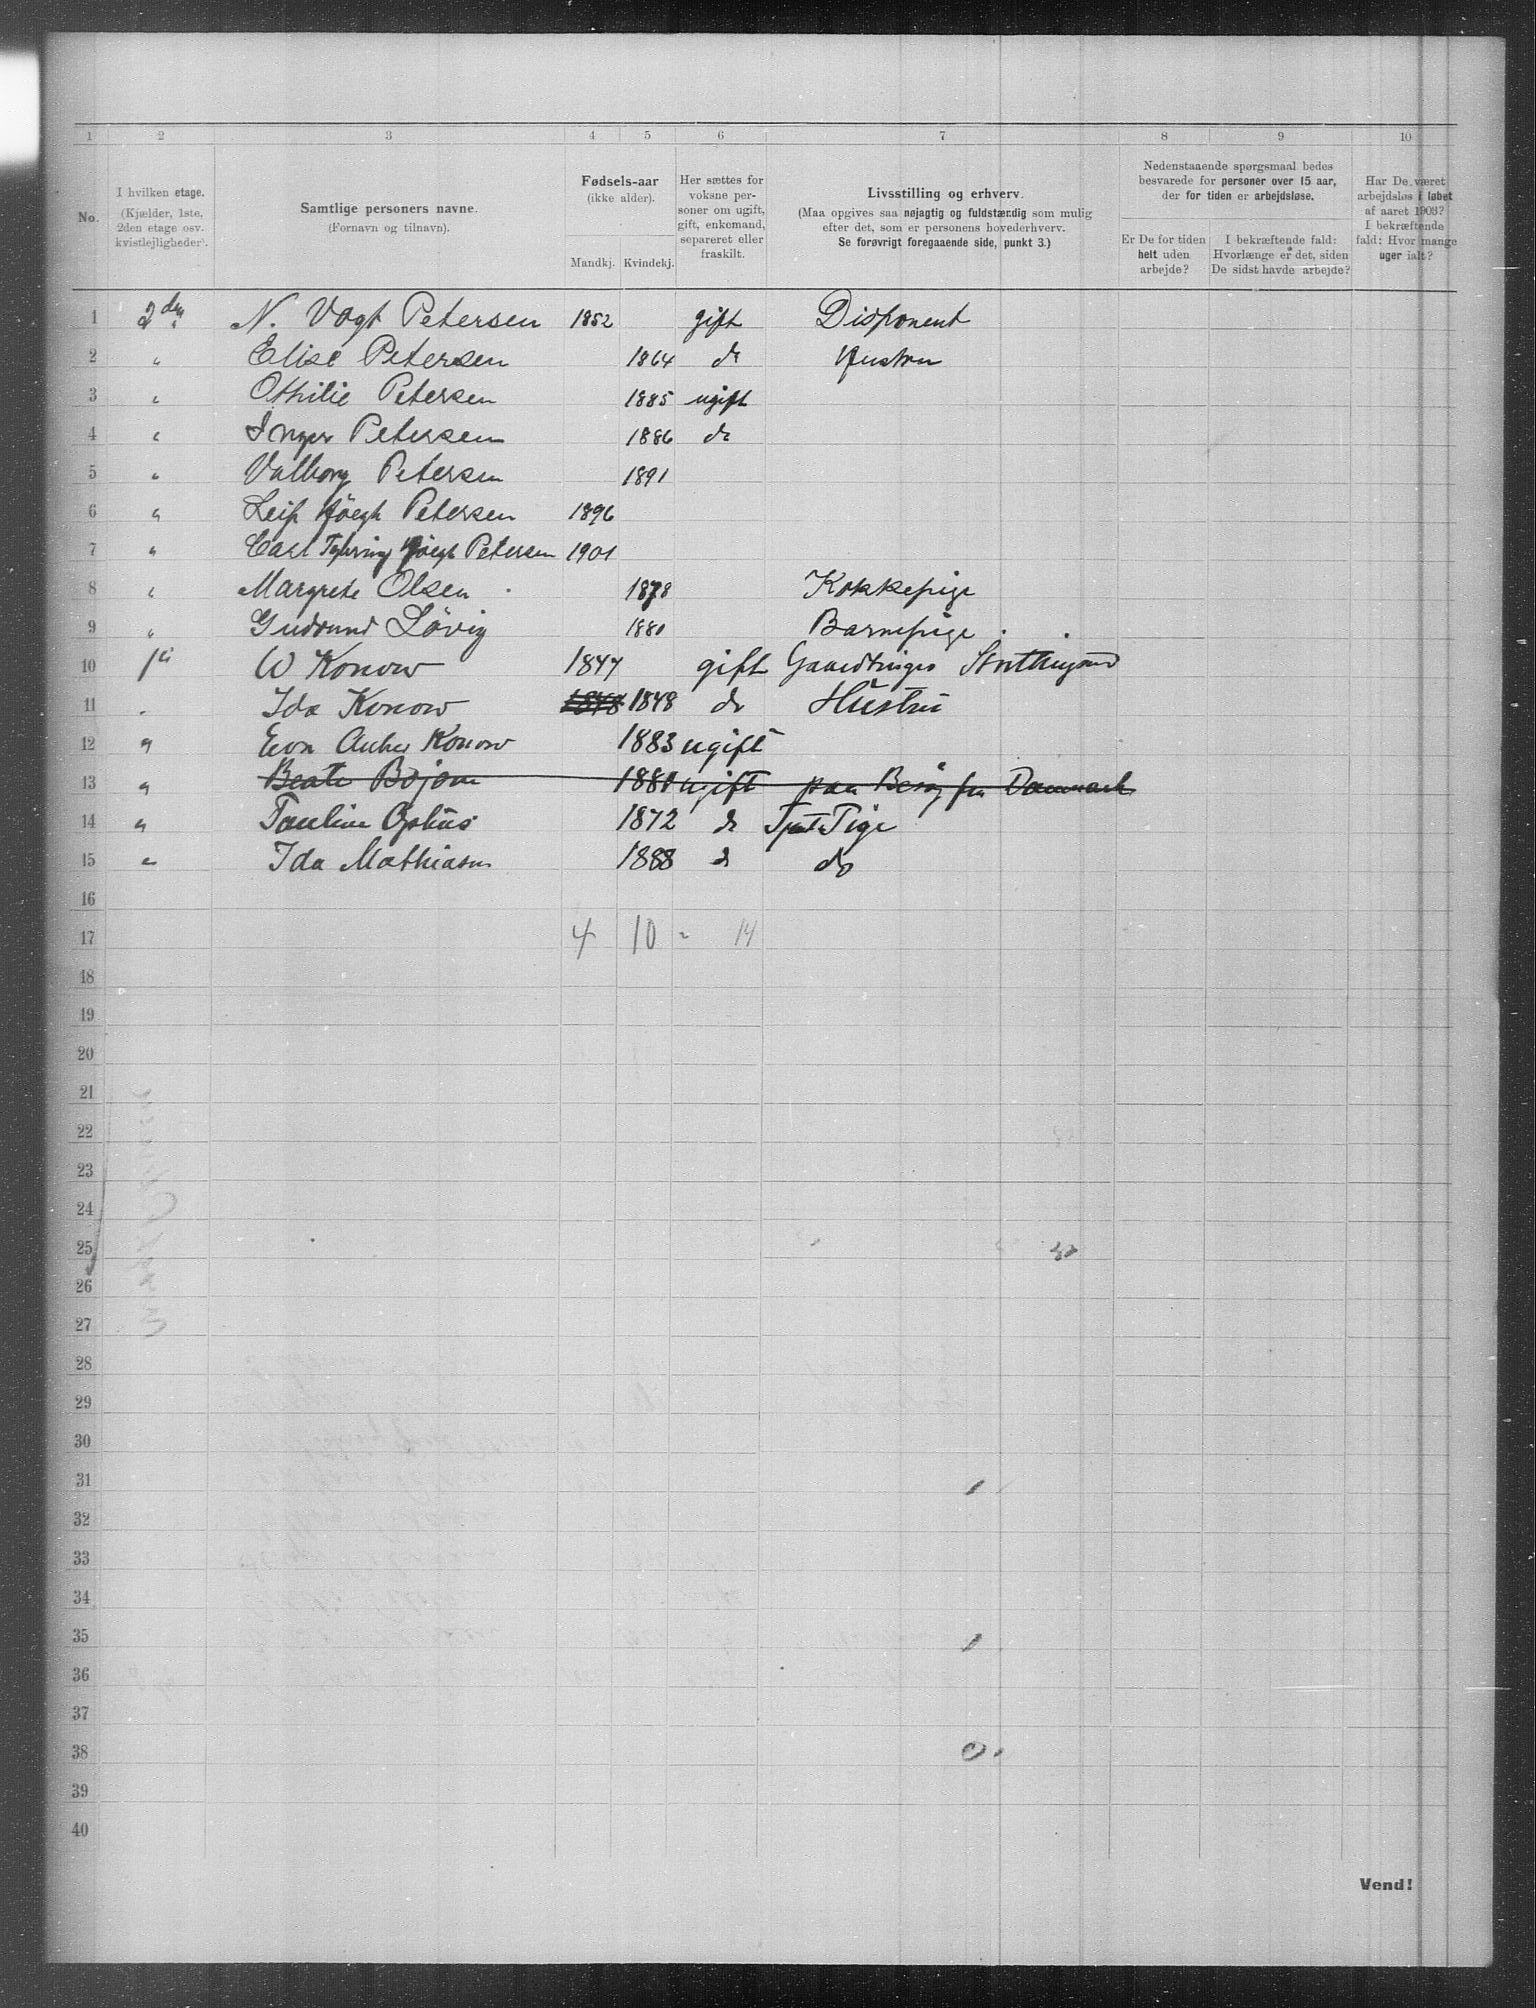 1 2 3 4 5 6 7 8 9 10
No.
I hvilken etage.
(Kjælder, 1ste,
2den etage osv.
kvistlejligheder).
Samtlige personers navne.
(Fornavn og tilnavn).
Fødsels-aar
(ikke alder).
Mandkj. Kvindekj.
Her sættes for
voksne per-
soner om ugift,
gift, enkemand,
separeret eller
fraskilt.
Livsstilling og erhverv.
(Maa opgives saa nøjagtig og fuldstændig som mulig
efter det, som er personens hovederhverv.
Se forøvrigt foregaaende side, punkt 3.)
Nedenstaaende spørgsmaal bedes
besvarede for personer over 15 aar,
der for tiden er arbejdsløse.
Er De for tiden
helt uden
arbejde?
I bekræftende fald:
Hvorlænge er det, siden
De sidst havde arbejde?
Har De været
arbejdsløs i løbet
af aaret 1903?
I bekræftende
fald: Hvor mange
uger ialt?
1 2den N. Vogt Petersen 1852 gift Disponent
2 " Elise Petersen 1864 do Hustru
3 " Othilie Petersen 1885 ugift
4 " Inger Petersen 1886 do
5 " Valborg Petersen 1891
6 " Leif Höegh Petersen 1896
7 " Carl Höegh Petersen 1901
8 " Margrete Olsen 1878 Kokkepige
9 " Gudrund Lövig 1880 Barnepige
10 W Konow 1847 gift
11 " Ida Konow 1848 1848 do Hustru
12 " Konow 1883 ugift
13 " Beate Bojom 1880 ugift paa Besøg fra Danmark
14 " Pauline Ophus 1872 do Pige
15 " Ida Mathiasen 1888 do do
16
17 4 10 - 14
18
19
20
21
22
23
24
25
26
27
28
29
30
31
32
33
34
35
36
37
38
39
40
Vend!